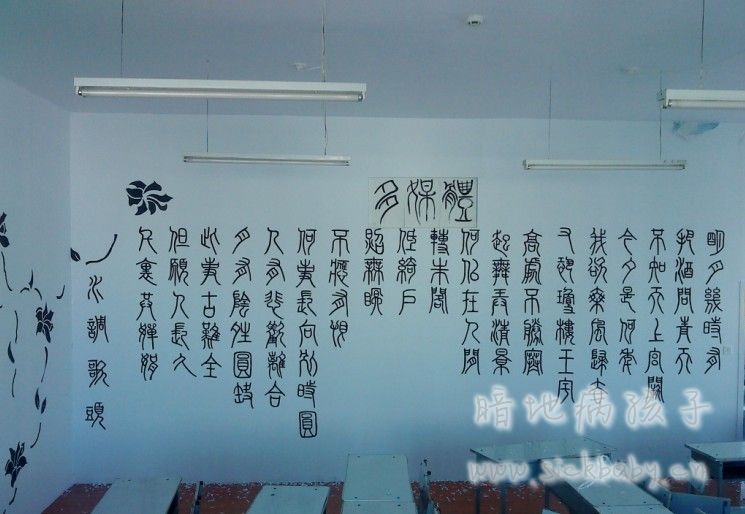 多媒體
明月幾時有
把酒問青天
不知天上宮闕
今夕是何年
我欲乘風歸去
又恐瓊樓玉宇
高處不勝寒
起舞弄清影
何似在人間
轉朱閣
低綺戶
照無眠
不應有恨
何事長向別時圓
人有悲歡離合
月有陰晴圓缺
此事古難全
但願人長久
千裏共嬋娟
水調歌頭
暗地病孩子
www.sickbaby.cn